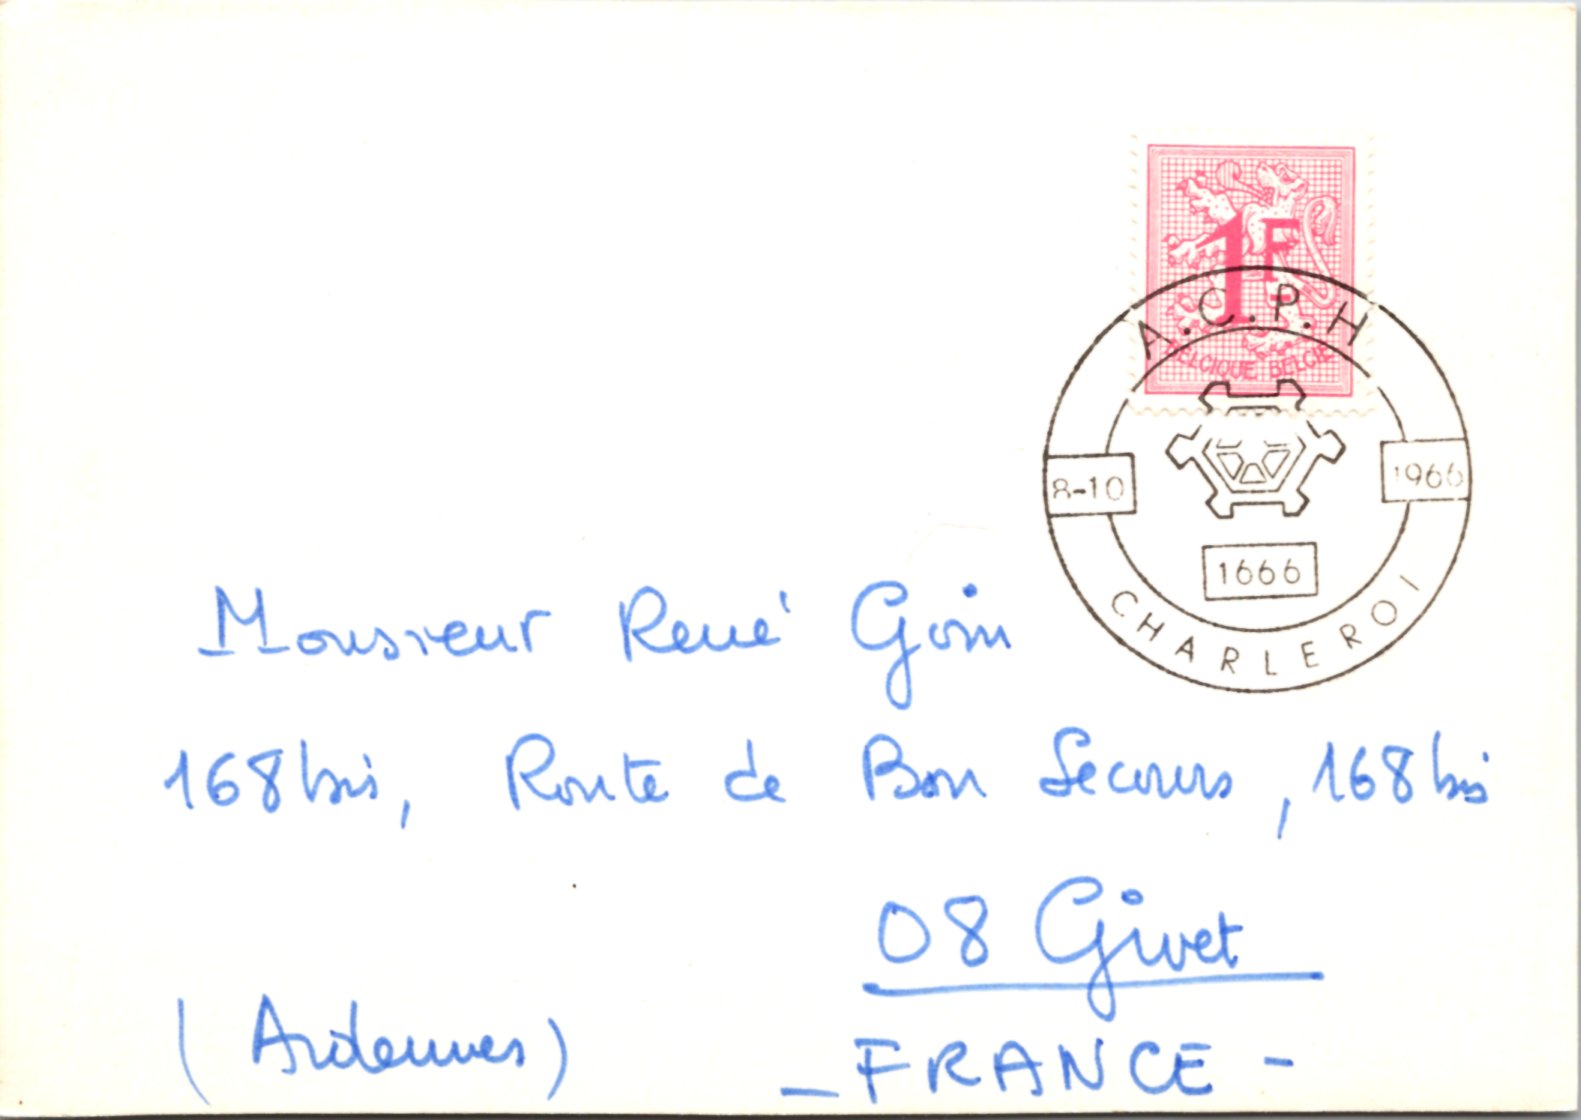 1F
BELGIQUE BELGIE
A.C.P.H
8-10
1966
1666
CHARLEROI
Monsieur René Goin
168bis, Route de Bon Secours, 168bis
08 Givet
(Ardennes)
- FRANCE -